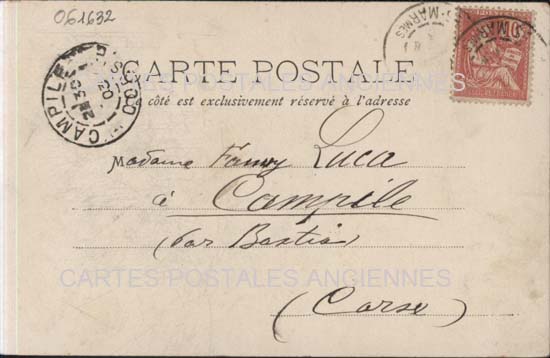 061632
CARTE POSTALE
Ce côté est exclusivement réservé à l'adresse
CAMPILE
CORSE
20
03
Madame Fanny Luca
à Campile
(par Bastia)
(Corse)
CARTES POSTALES ANCIENNES
CARTES POSTALES ANCIENNES